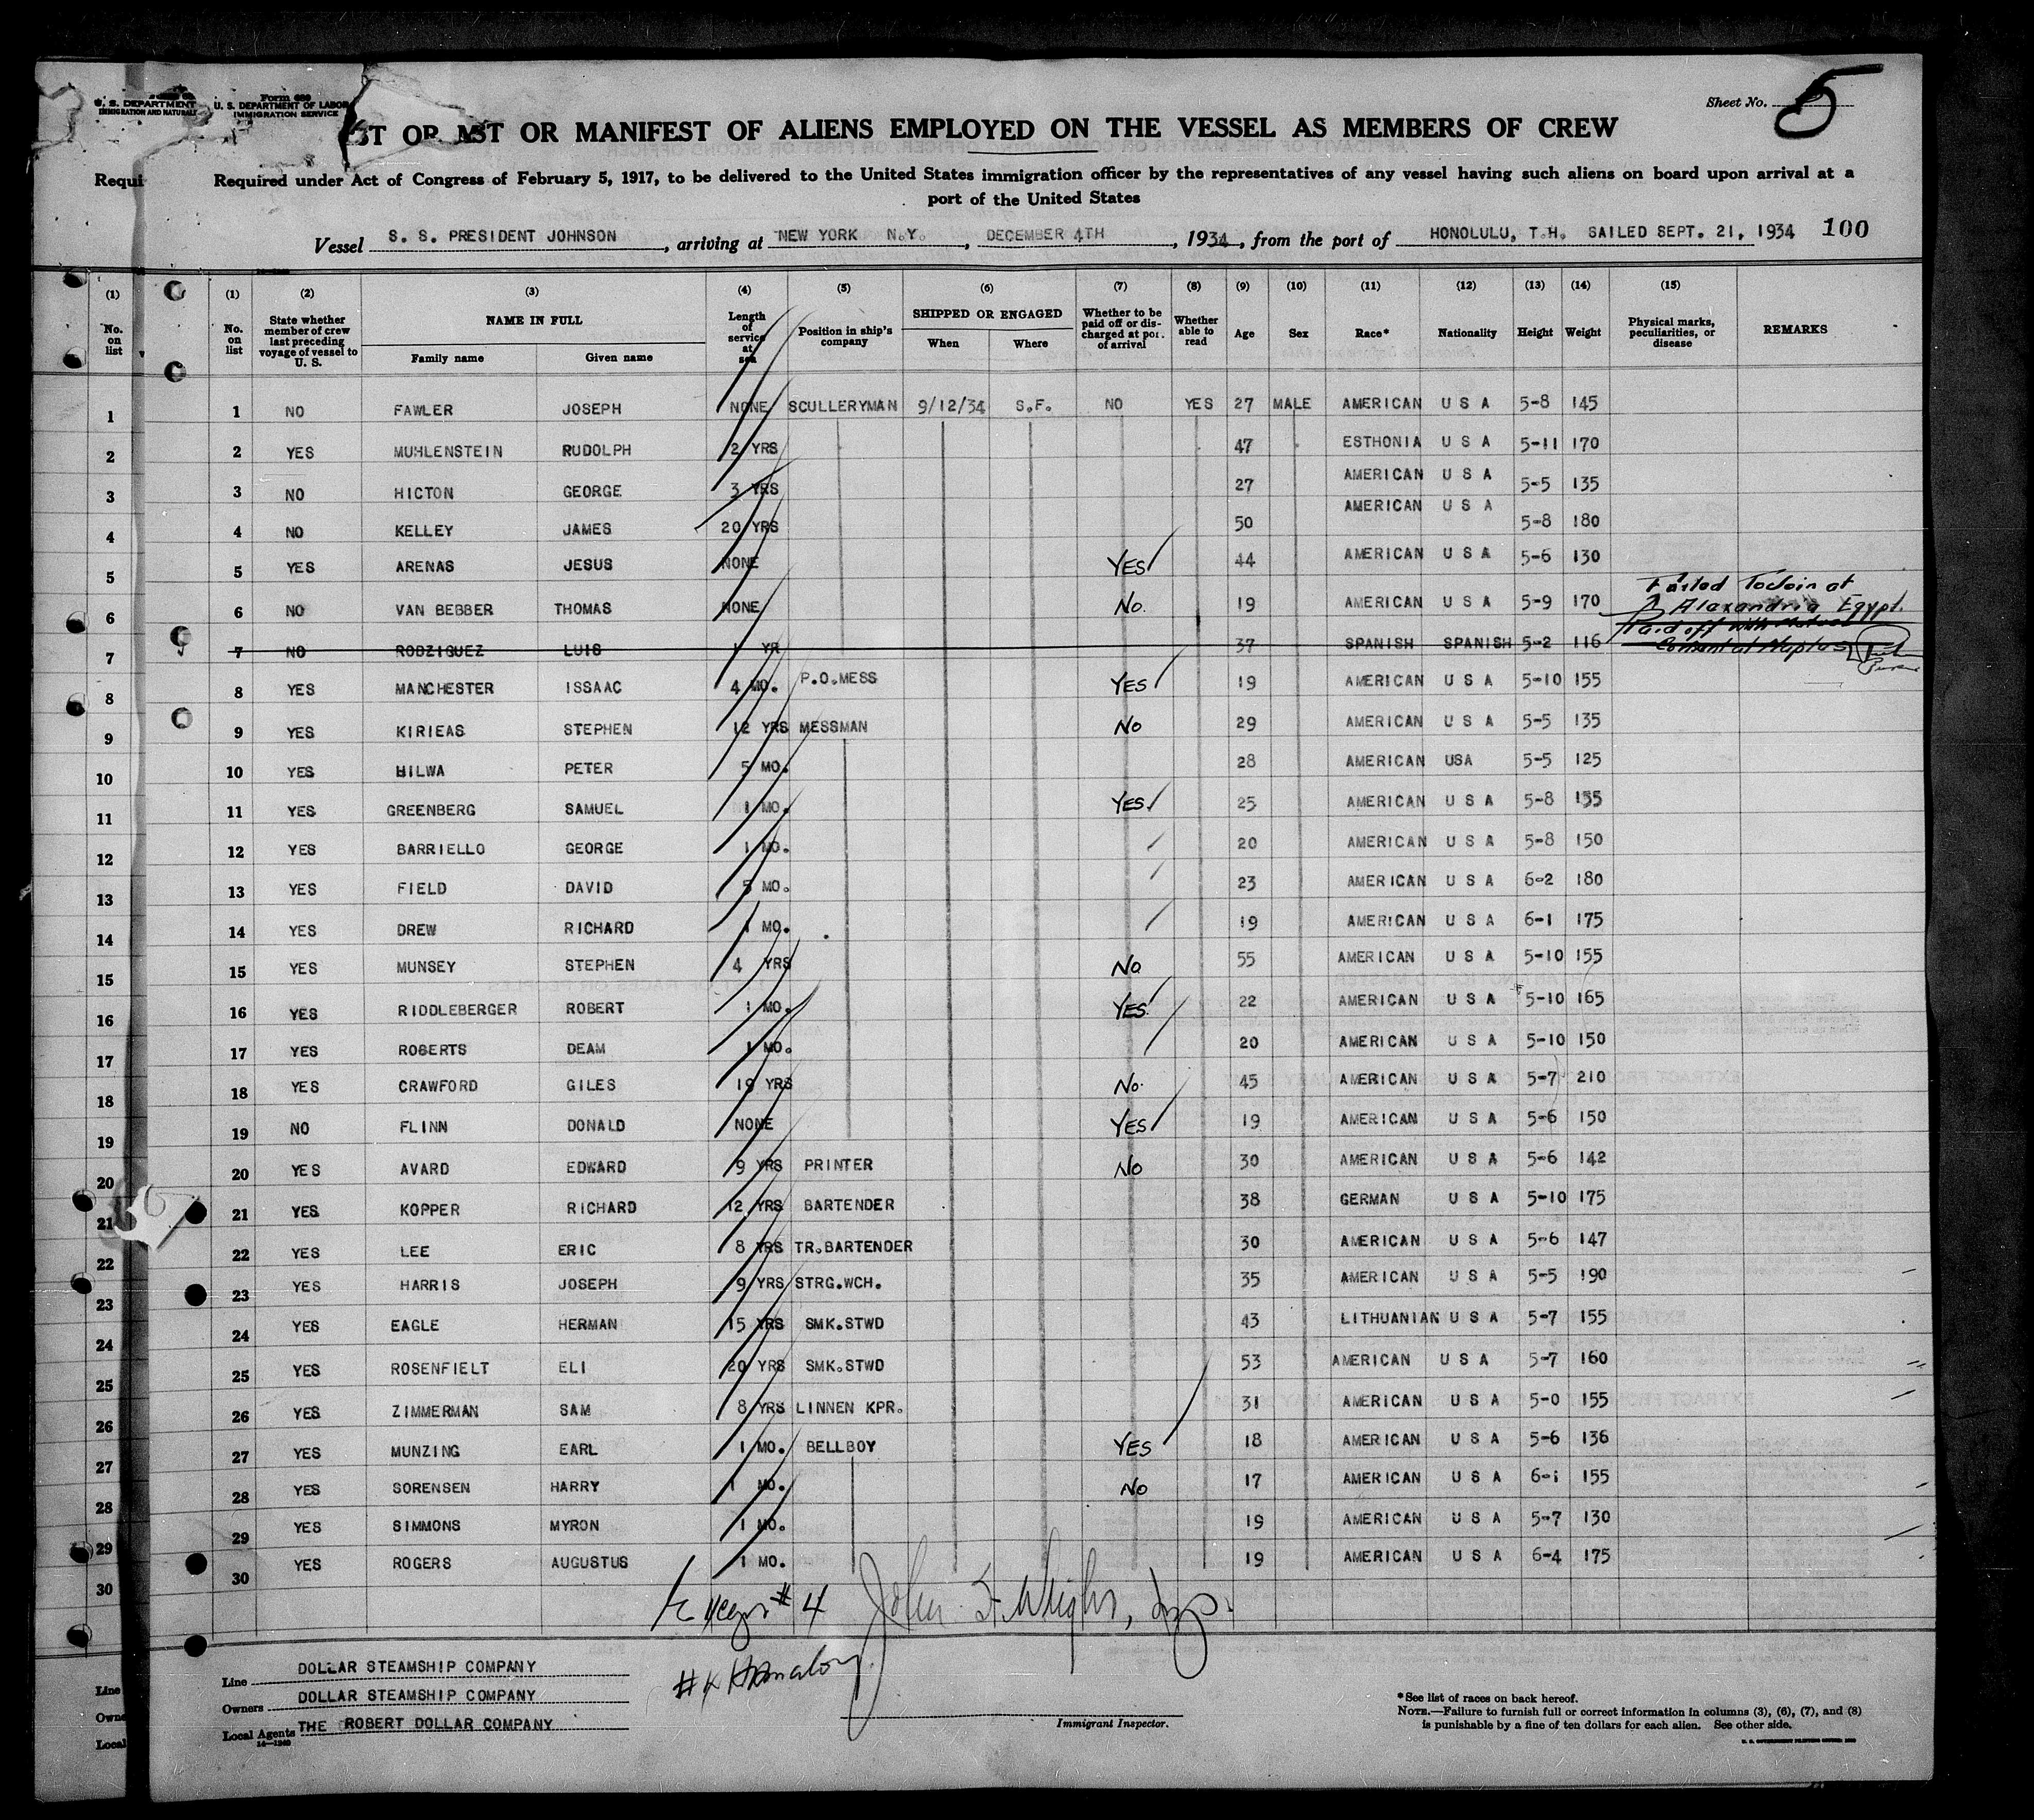 Sheet No. 5
U. S. DEPARTMENT
IMMIGRATION AND NATURALI
Form 689
U. S. DEPARTMENT OF LABOR
IMMIGRATION SERVICE
ST OR MANIFEST OF ALIENS EMPLOYED ON THE VESSEL AS MEMBERS OF CREW
Requi
Required under Act of Congress of February 5, 1917, to be delivered to the United States immigration officer by the representatives of any vessel having such aliens on board upon arrival at a
port of the United States
Vessel S. S. PRESIDENT JOHNSON, arriving at NEW YORK N.Y., DECEMBER 4TH, 1934, from the port of HONOLULU, T.H. SAILED SEPT. 21, 1934 100
(1) (1) (2) (3) (4) (5) (6) (7) (8) (9) (10) (11) (12) (13) (14) (15)
No. on list No. on list State whether member of crew last preceding voyage of vessel to U. S. NAME IN FULL Family name Given name Length of service at sea Position in ship's company SHIPPED OR ENGAGED When Where Whether to be paid off or discharged at port of arrival Whether able to read Age Sex Race* Nationality Height Weight Physical marks, peculiarities, or disease REMARKS
1 1 NO FAWLER JOSEPH NONE SCULLERYMAN 9/12/34 S.F. NO YES 27 MALE AMERICAN U S A 5-8 145
2 2 YES MUHLENSTEIN RUDOLPH 2 YRS 47 ESTHONIA U S A 5-11 170
3 3 NO HICTON GEORGE 3 YRS 27 AMERICAN U S A 5-5 135
4 4 NO KELLEY JAMES 20 YRS 50 AMERICAN U S A 5-8 180
5 5 YES ARENAS JESUS NONE YES 44 AMERICAN U S A 5-6 130
Failed To Join at
6 6 NO VAN BEBBER THOMAS NONE No. 19 AMERICAN U S A 5-9 170 Alexandria Egypt.
Paid off with Mutual
7 7 NO RODZIGUEZ LUIS 1 YR 37 SPANISH SPANISH 5-2 116 Consent at Naples
8 8 YES MANCHESTER ISSAAC 4 MO. P.O.MESS YES 19 AMERICAN U S A 5-10 155
9 9 YES KIRIEAS STEPHEN 12 YRS MESSMAN No 29 AMERICAN U S A 5-5 135
10 10 YES HILWA PETER 5 MO. 28 AMERICAN USA 5-5 125
11 11 YES GREENBERG SAMUEL 1 MO. YES 25 AMERICAN U S A 5-8 155
12 12 YES BARRIELLO GEORGE 1 MO. 20 AMERICAN U S A 5-8 150
13 13 YES FIELD DAVID 5 MO. 23 AMERICAN U S A 6-2 180
14 14 YES DREW RICHARD 1 MO. 19 AMERICAN U S A 6-1 175
15 15 YES MUNSEY STEPHEN 4 YRS No 55 AMERICAN U S A 5-10 155
16 16 YES RIDDLEBERGER ROBERT 1 MO. YES 22 AMERICAN U S A 5-10 165
17 17 YES ROBERTS DEAM 1 MO. 20 AMERICAN U S A 5-10 150
18 18 YES CRAWFORD GILES 19 YRS No. 45 AMERICAN U S A 5-7 210
19 19 NO FLINN DONALD NONE YES 19 AMERICAN U S A 5-6 150
20 20 YES AVARD EDWARD 9 YRS PRINTER No 30 AMERICAN U S A 5-6 142
21 21 YES KOPPER RICHARD 12 YRS BARTENDER 38 GERMAN U S A 5-10 175
22 22 YES LEE ERIC 8 YRS TR.BARTENDER 30 AMERICAN U S A 5-6 147
23 23 YES HARRIS JOSEPH 9 YRS STRG.WCH. 35 AMERICAN U S A 5-5 190
24 24 YES EAGLE HERMAN 15 YRS SMK.STWD 43 LITHUANIAN U S A 5-7 155
25 25 YES ROSENFIELT ELI 20 YRS SMK.STWD 53 AMERICAN U S A 5-7 160
26 26 YES ZIMMERMAN SAM 8 YRS LINNEN KPR. 31 AMERICAN U S A 5-0 155
27 27 YES MUNZING EARL 1 MO. BELLBOY YES 18 AMERICAN U S A 5-6 136
28 28 YES SORENSEN HARRY 1 MO. No 17 AMERICAN U S A 6-1 155
29 29 YES SIMMONS MYRON 1 MO. 19 AMERICAN U S A 5-7 130
30 30 YES ROGERS AUGUSTUS 1 MO. 19 AMERICAN U S A 6-4 175
# 4 John
Line
Line DOLLAR STEAMSHIP COMPANY
Owne
Owners DOLLAR STEAMSHIP COMPANY
Local
Local Agents THE ROBERT DOLLAR COMPANY
14—1240
Immigrant Inspector.
*See list of races on back hereof.
NOTE.—Failure to furnish full or correct information in columns (3), (6), (7), and (8)
is punishable by a fine of ten dollars for each alien. See other side.